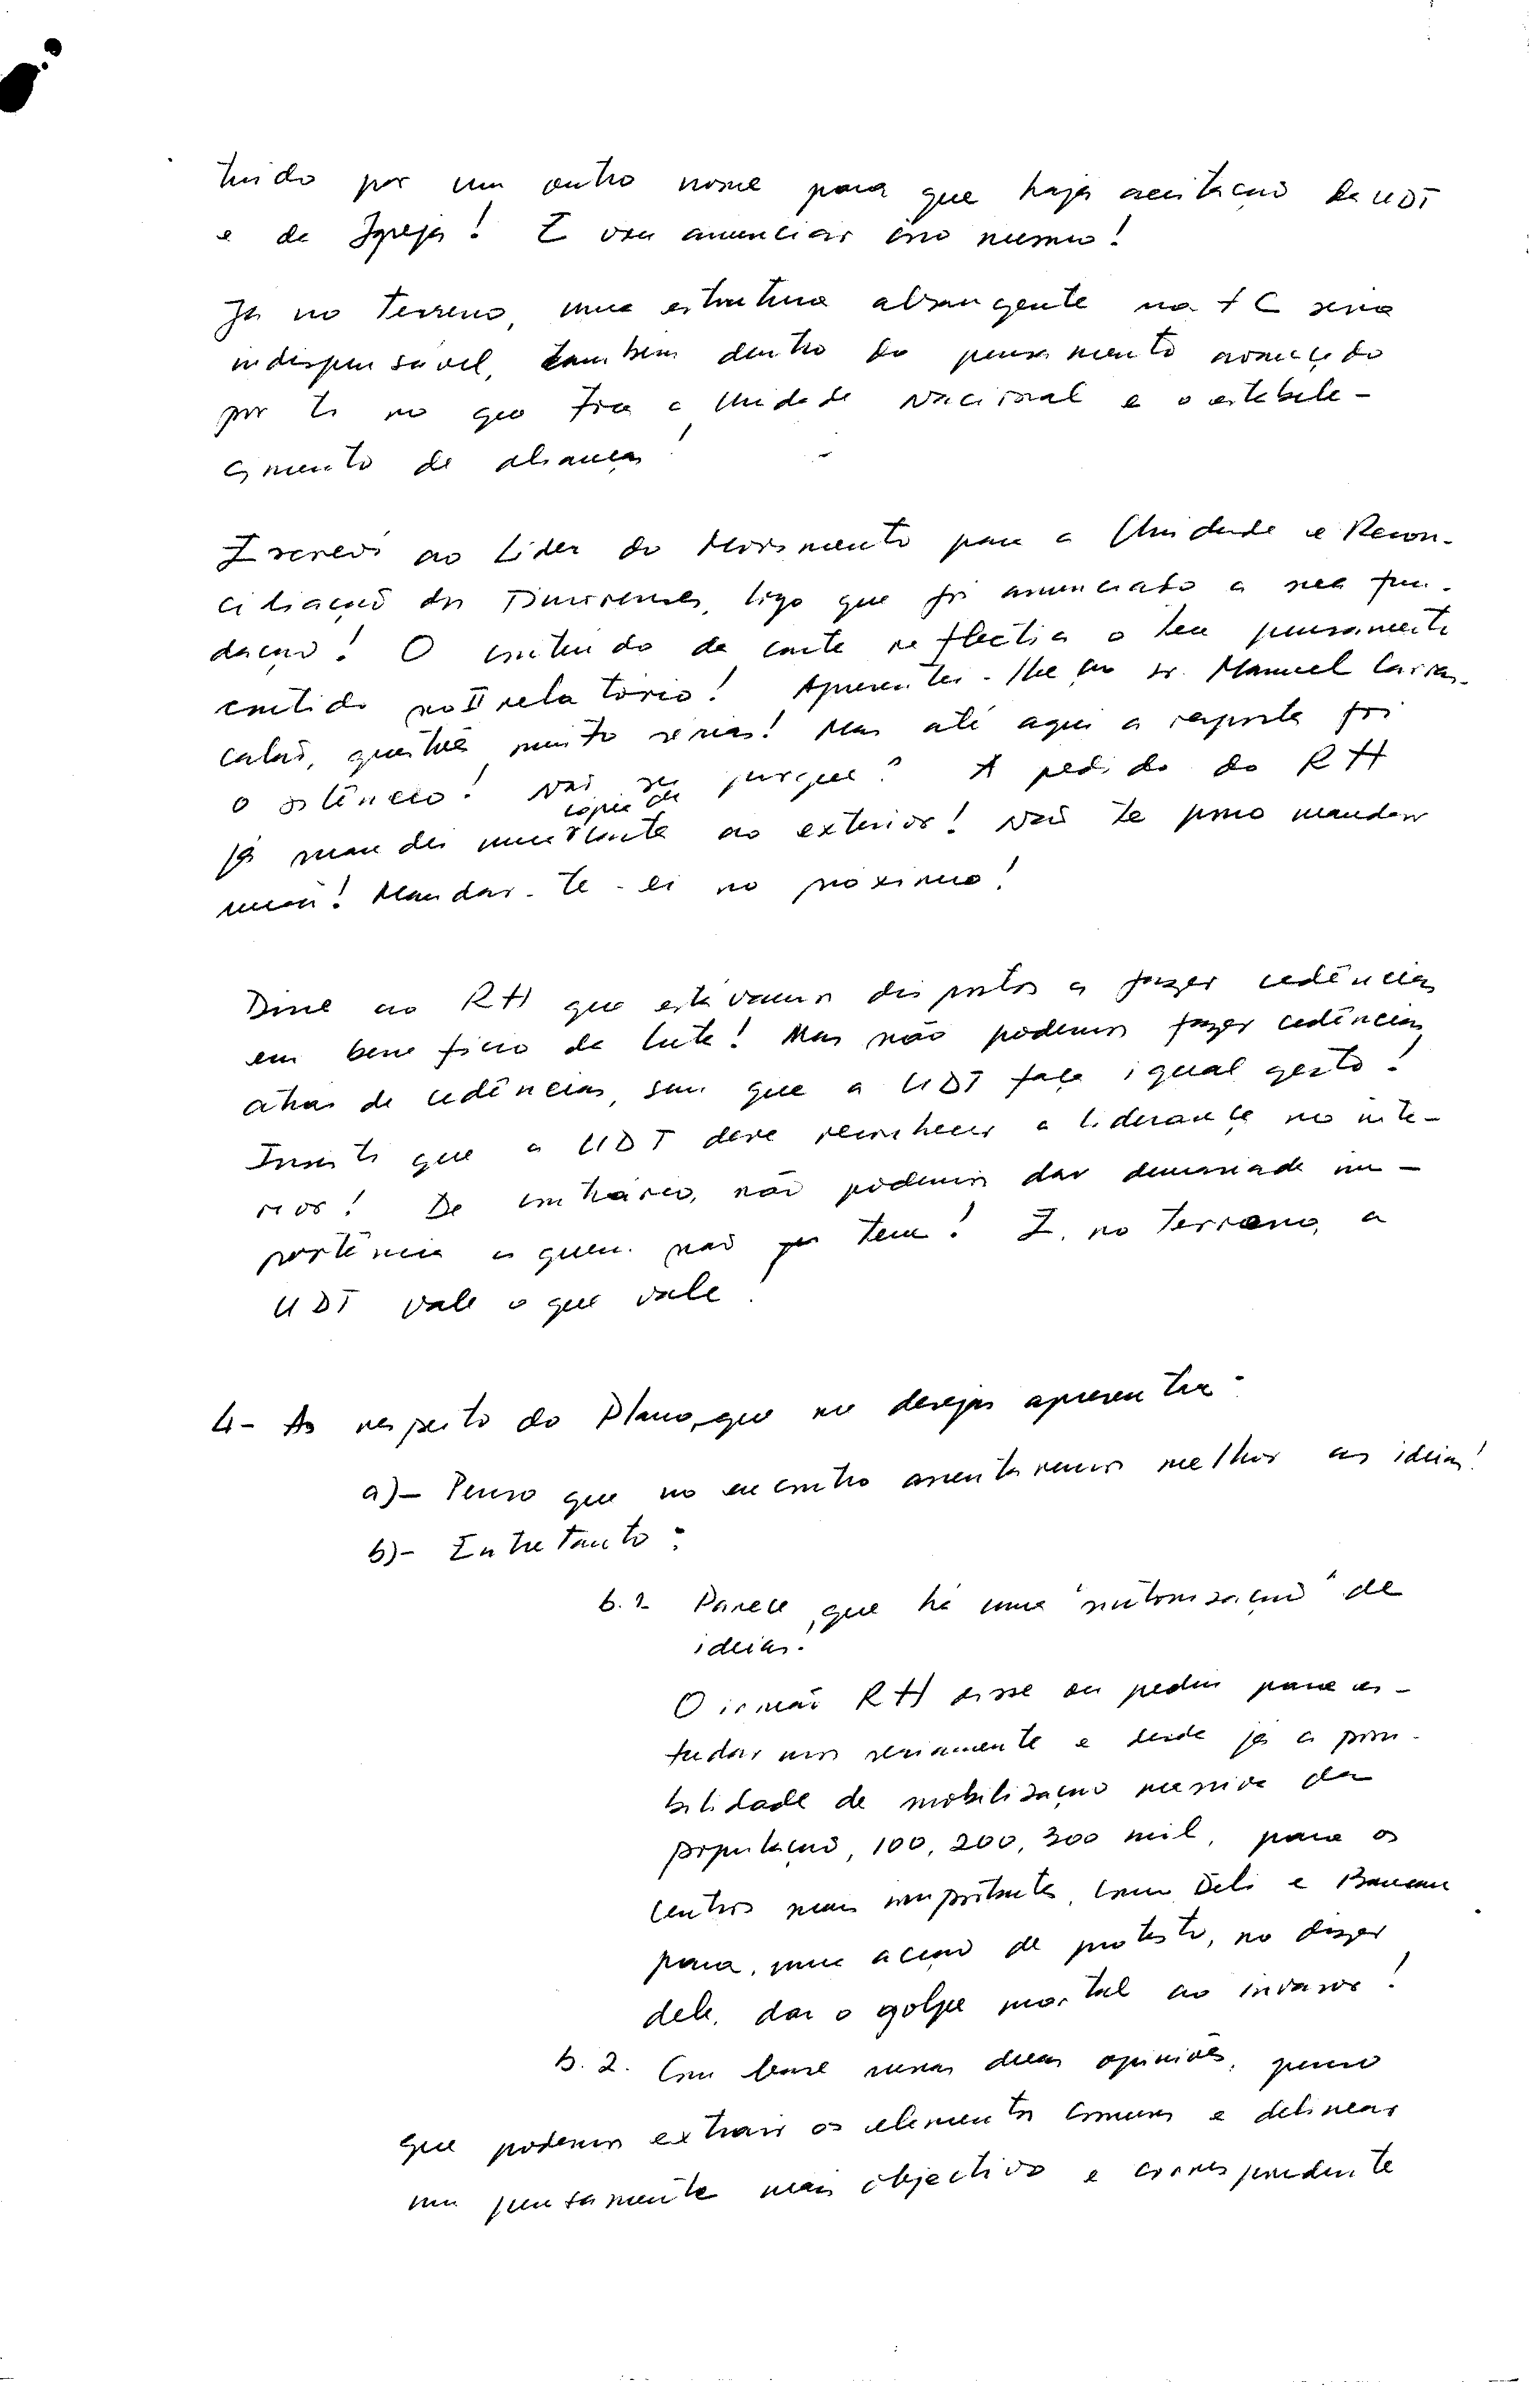 tuido por um outro nome para que haja aceitação da UDT
e da Igreja! E vou anunciar isso mesmo!
Já no terreno, uma estrutura abrangente na FC seria
indispensável, também dentro do pensamento avançado
por ti no que toca a Unidade Nacional e o estabele-
cimento de alianças!
Escrevi ao Líder do Movimento para a Unidade e Recon-
ciliação dos Timorenses, logo que foi anunciado a sua fun-
dação! O conteúdo da carta reflectia o teu pensamento
contido no II relatório! Apresentei-lhe ao sr. Manuel Carras-
calão, questões muito sérias! Mas até aqui a resposta foi
o silêncio! Não sei porque? A pedido do RH
já mandei uma cópia da carta ao exterior! Não te posso mandar
uma! Mandar-te-ei no próximo!
Disse ao RH que estávamos dispostos a fazer cedências
em benefício da luta! Mas não podemos fazer cedências
atras de cedências, sem que a UDT faça igual gesto!
Insisti que a UDT deve reconhecer a liderança no inte-
rior! De contrário, não podemos dar demasiada im-
portância a quem não tem! E, no terreno, a
UDT vale o que vale!
4- Ao respeito do Plano, que me desejas apresentar:
a)- Penso que no encontro assentaremos melhor as ideias!
b)- Entretanto:
b.1 Parece, que há uma "sintonização" de
ideias!
O irmão RH disse ou pediu para es-
tudarmos seriamente e desde já a possi-
bilidade de mobilização massiva da
população, 100, 200, 300 mil, para os
centros mais importantes, como Dili e Baucau
para, uma acção de protesto, no dizer
dele, dar o golpe mortal ao invasor!
b.2. Com base nessas duas opiniões, penso
que podemos extrair os elementos comuns e delinear
um pensamento mais objectivo e correspondente